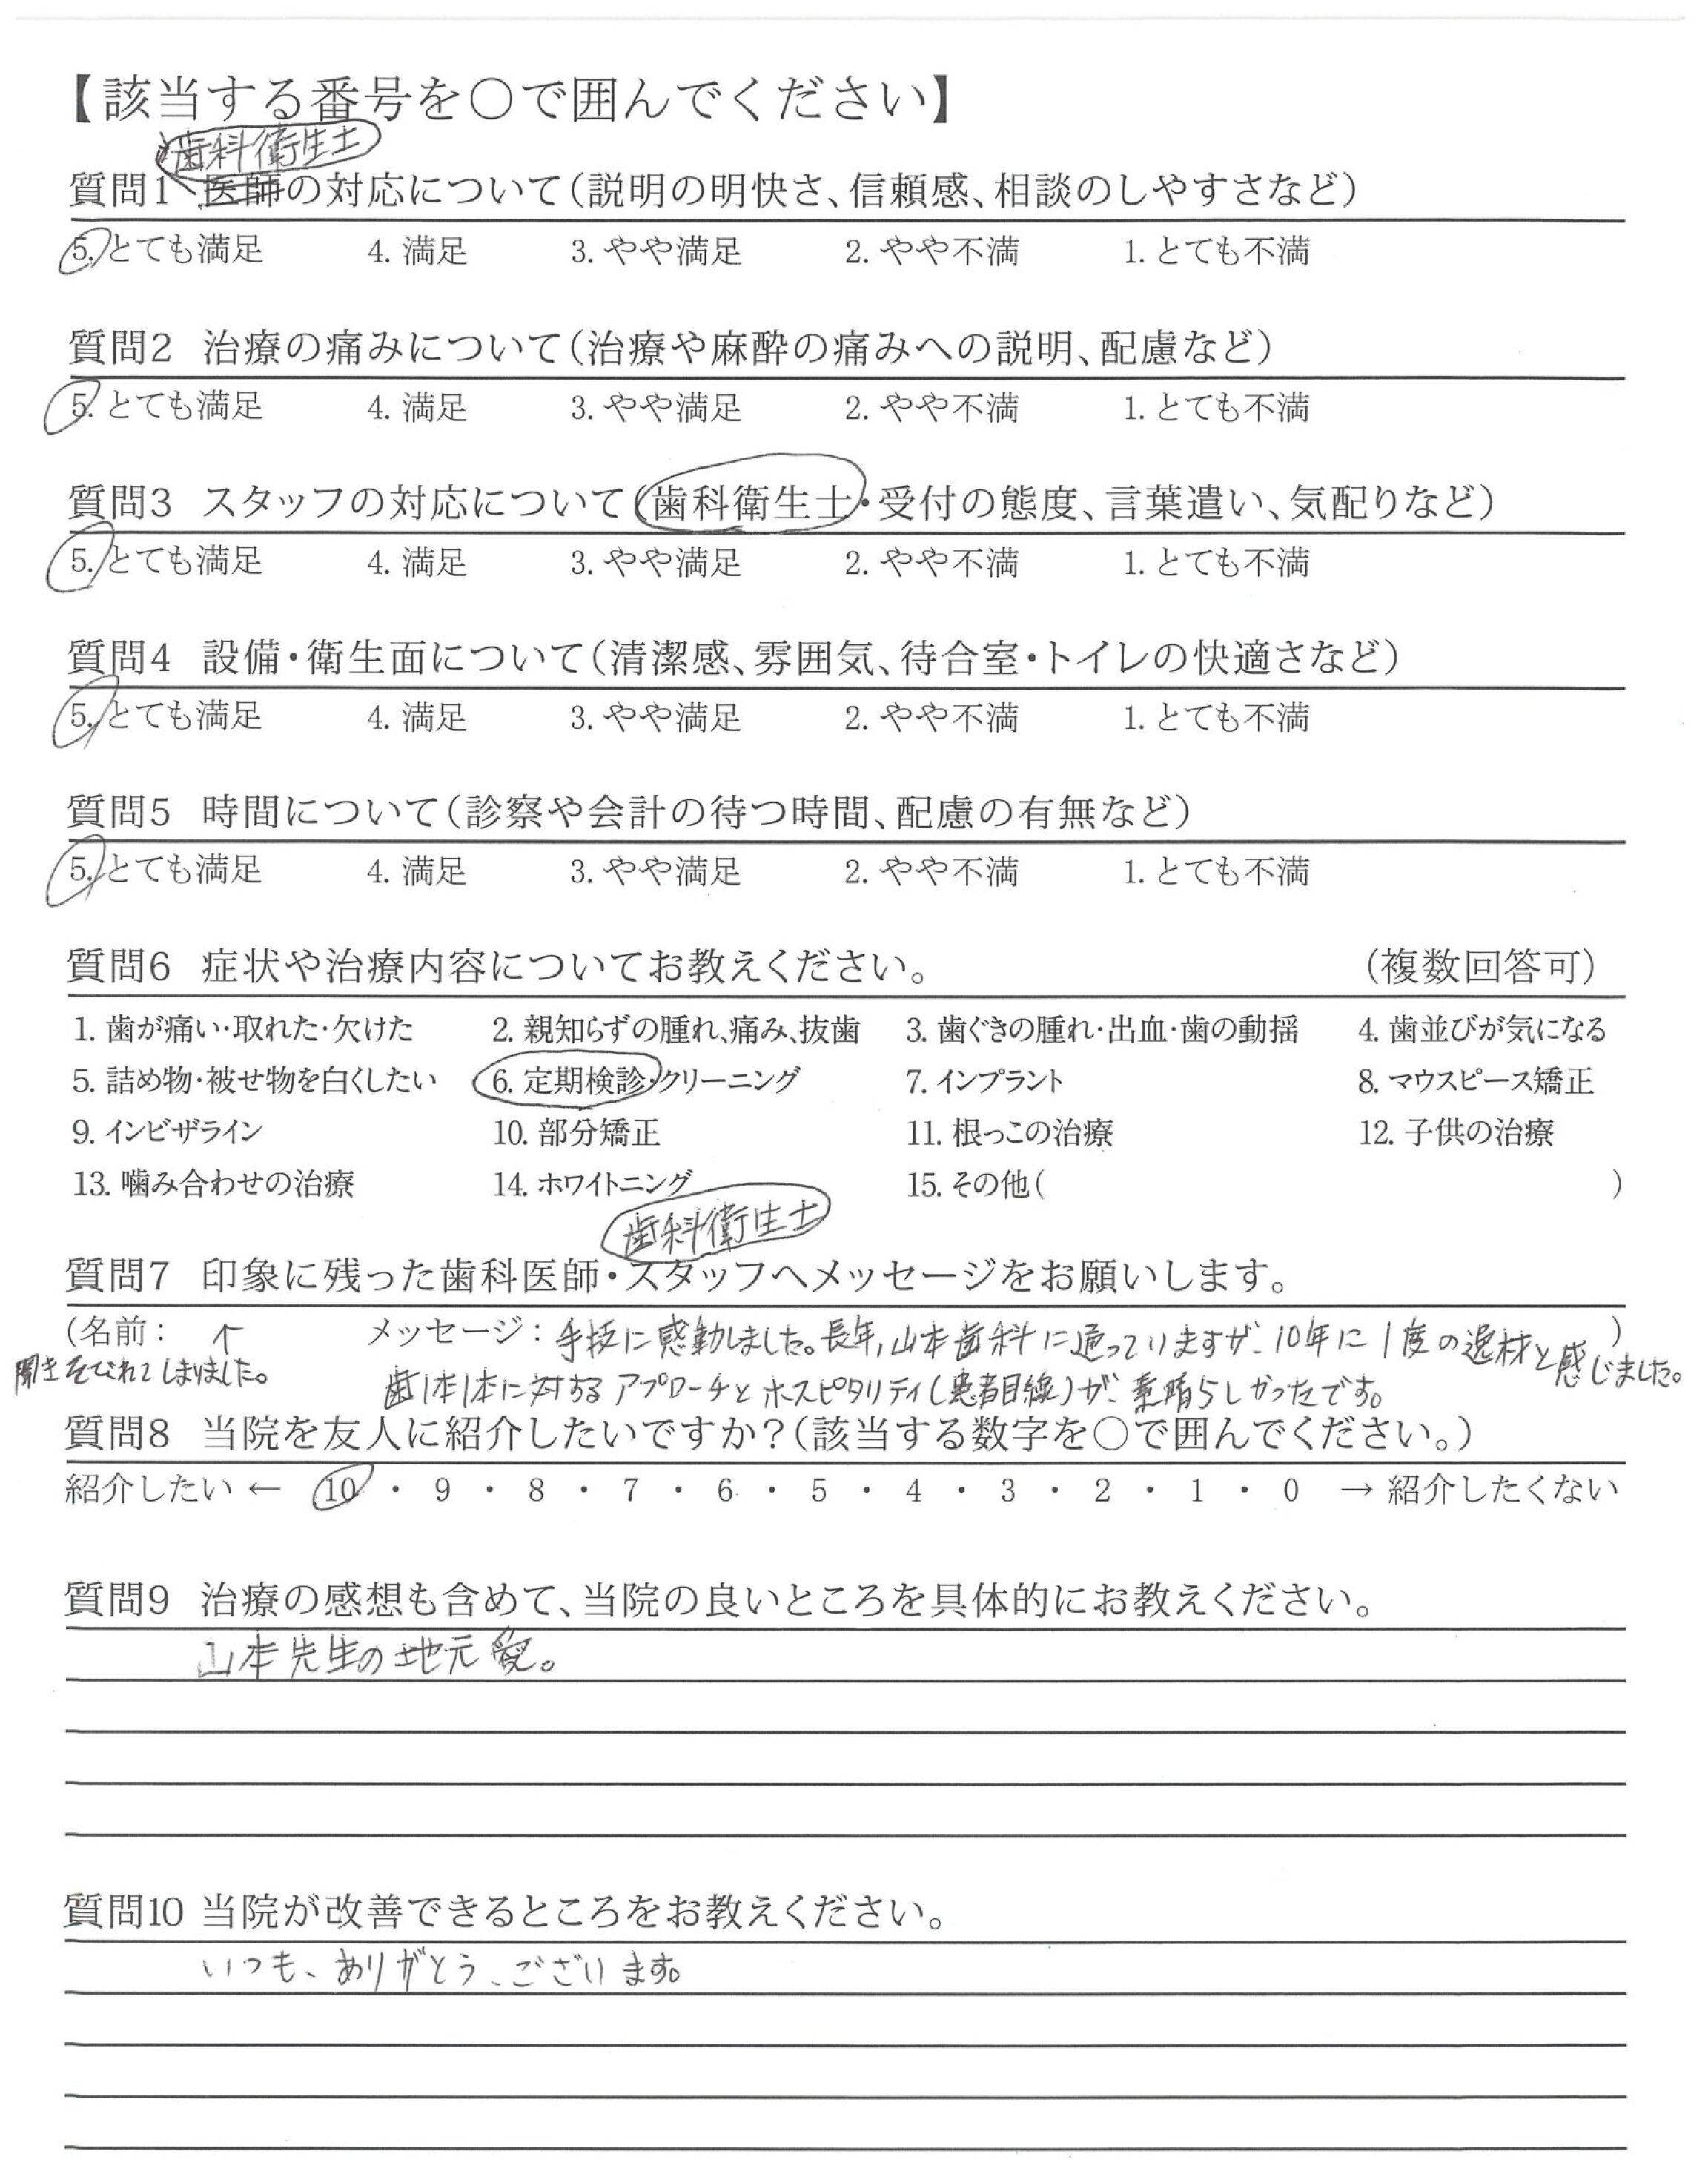 【該当する番号を○で囲んでください】
歯科衛生士
質問1 医師の対応について(説明の明快さ、信頼感、相談のしやすさなど)
5. とても満足 4. 満足 3. やや満足 2. やや不満 1. とても不満
質問2 治療の痛みについて(治療や麻酔の痛みへの説明、配慮など)
5. とても満足 4. 満足 3. やや満足 2. やや不満 1. とても不満
質問3 スタッフの対応について(歯科衛生士・受付の態度、言葉遣い、気配りなど)
5. とても満足 4. 満足 3. やや満足 2. やや不満 1. とても不満
質問4 設備・衛生面について(清潔感、雰囲気、待合室・トイレの快適さなど)
5. とても満足 4. 満足 3. やや満足 2. やや不満 1. とても不満
質問5 時間について(診察や会計の待つ時間、配慮の有無など)
5. とても満足 4. 満足 3. やや満足 2. やや不満 1. とても不満
質問6 症状や治療内容についてお教えください。 (複数回答可)
1. 歯が痛い・取れた・欠けた 2. 親知らずの腫れ、痛み、抜歯 3. 歯ぐきの腫れ・出血・歯の動揺 4. 歯並びが気になる
5. 詰め物・被せ物を白くしたい 6. 定期検診・クリーニング 7. インプラント 8. マウスピース矯正
9. インビザライン 10. 部分矯正 11. 根っこの治療 12. 子供の治療
13. 噛み合わせの治療 14. ホワイトニング 15. その他( )
歯科衛生士
質問7 印象に残った歯科医師・スタッフへメッセージをお願いします。
(名前： ↑ メッセージ：手技に感動しました。長年、山本歯科に通っていますが、10年に1度の逸材と感じました。)
聞きそびれてしまいました。 歯1本1本に対するアプローチとホスピタリティ(患者目線)が、素晴らしかったです。
質問8 当院を友人に紹介したいですか？(該当する数字を○で囲んでください。)
紹介したい ← 10 ・ 9 ・ 8 ・ 7 ・ 6 ・ 5 ・ 4 ・ 3 ・ 2 ・ 1 ・ 0 → 紹介したくない
質問9 治療の感想も含めて、当院の良いところを具体的にお教えください。
山本先生の地元愛。
質問10 当院が改善できるところをお教えください。
いつも、ありがとう、ございます。